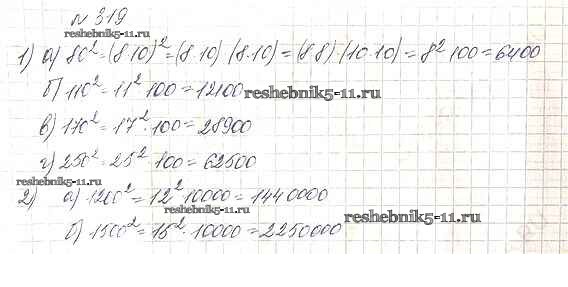 № 319
reshebnik5-11.ru
1) а) 80² = (8·10)² = (8·10)·(8·10) = (8·8)·(10·10) = 8²·100 = 6400
б) 110² = 11²·100 = 12100
reshebnik5-11.ru
в) 170² = 17²·100 = 28900
г) 250² = 25²·100 = 62500
reshebnik5-11.ru
2) а) 1200² = 12²·10000 = 1440000
reshebnik5-11.ru
reshebnik5-11.ru
б) 1500² = 15²·10000 = 2250000